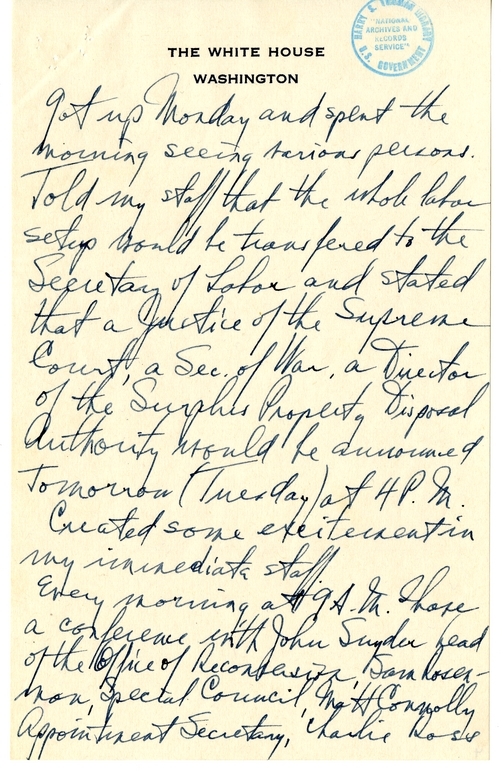 HARRY S. TRUMAN LIBRARY
"NATIONAL
ARCHIVES AND
RECORDS
SERVICE"
U.S. GOVERNMENT
THE WHITE HOUSE
WASHINGTON
Got up Monday and spent the
morning seeing various persons.
Told my staff that the whole labor
setup would be transfered to the
Secretary of Labor and stated
that a Justice of the Supreme
Court, a Sec. of War, a Director
of the Surplus Property Disposal
Authority would be announced
tomorrow (Tuesday) at 4 P.M.
Created some excitement in
my immediate staff.
Every morning at 9 A.M. I have
a conference with John Snyder head
of the Office of Reconversion, Sam Rosen-
man, Special Council, Matt Connolly
Appointment Secretary, Charlie Ross